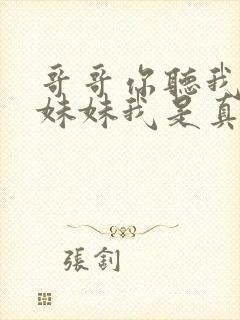 哥哥你聽我
妹妹我是真
張釗